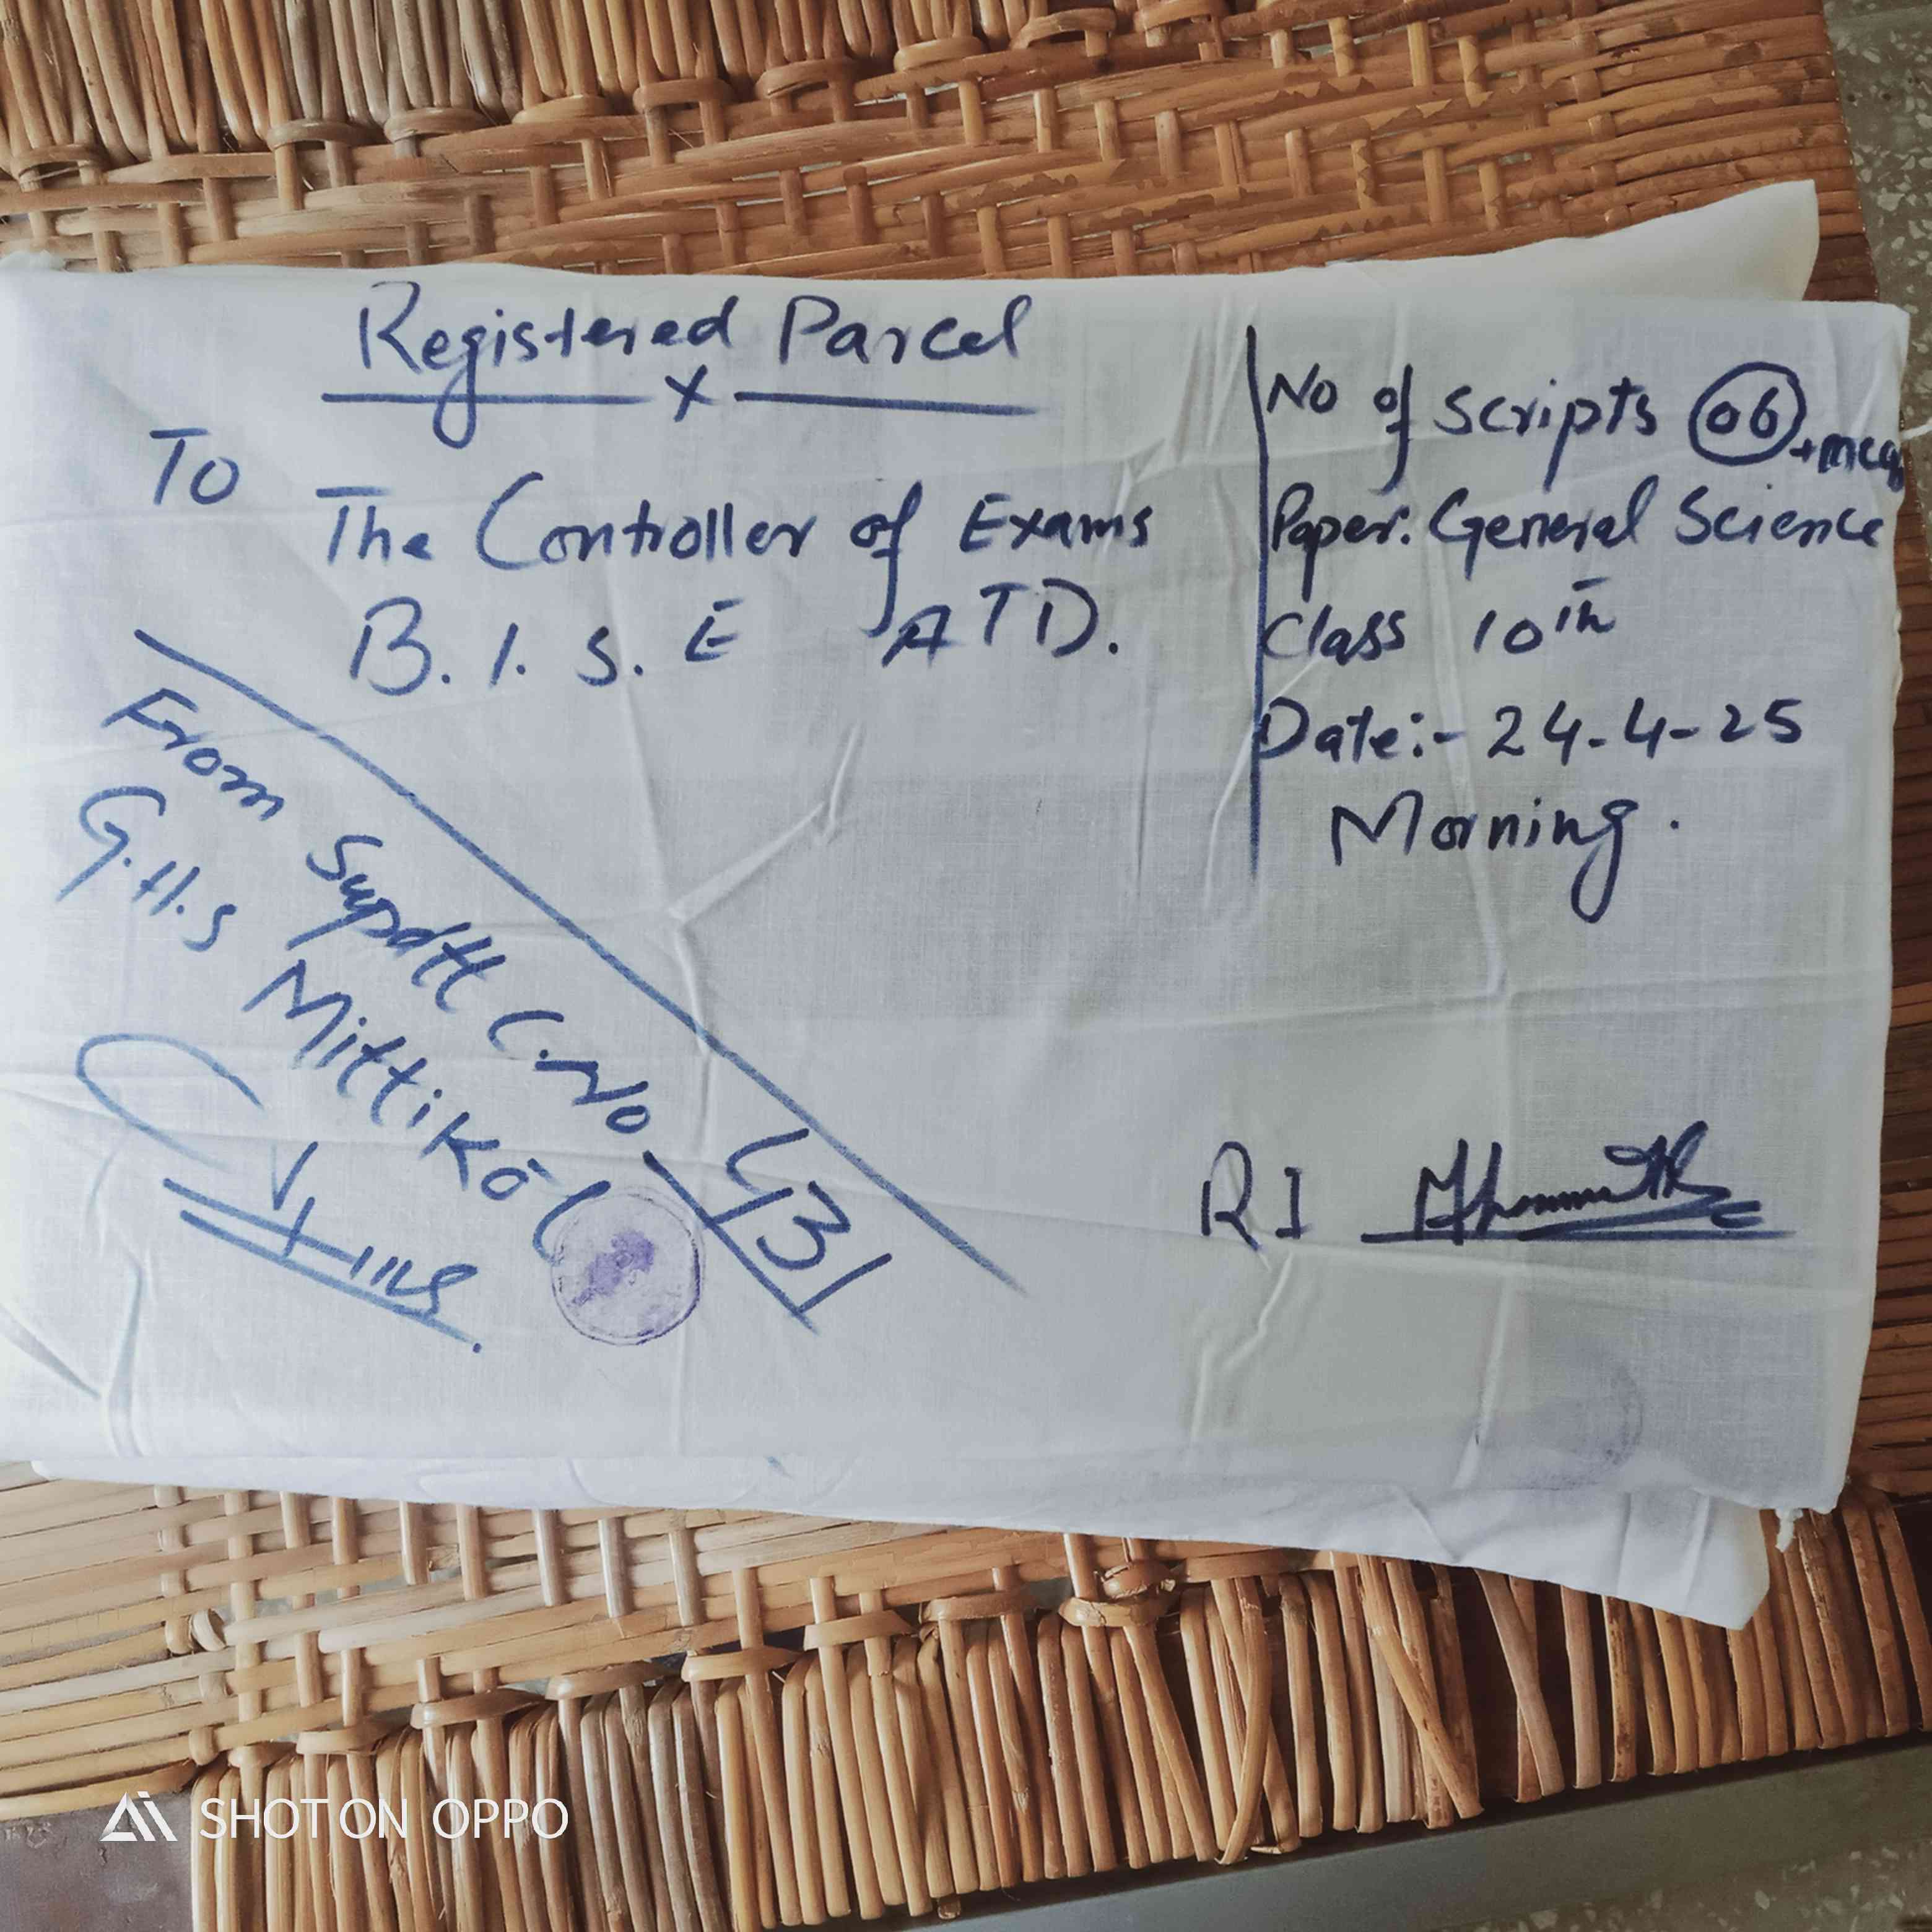 Registered Parcel
x
To
The Controller of Exams
B.I.S.E ATD.
No of Scripts 06 +mcqs
Paper: General Science
Class 10th
Date:- 24-4-25
Morning.
From Supdtt C.No 431
G.H.S Mittikot
RI
SHOT ON OPPO